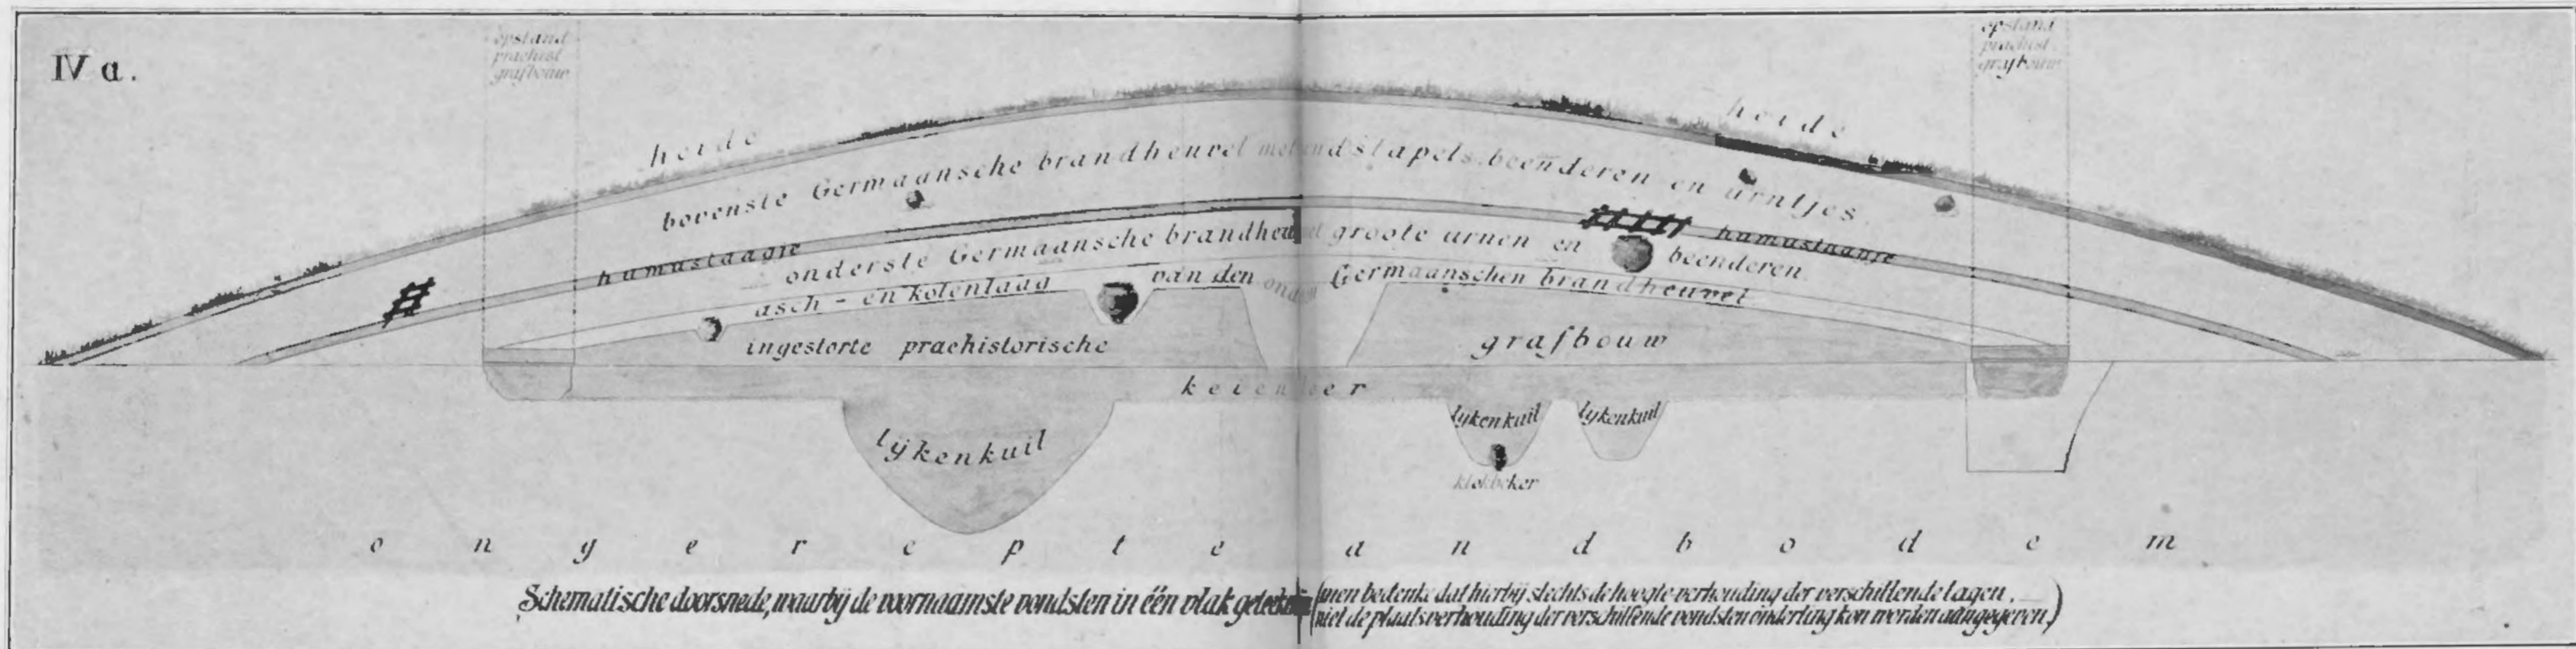 IV a.
opstand
praehist
grafbouw
opstand
praehist.
grafbouw
heide
heide
bovenste Germaansche brandheuvel met stapels beenderen en urntjes.
humuslaagje
humuslaagje
onderste Germaansche brandheuvel groote urnen en beenderen.
asch - en kolenlaag van den Germaanschen brandheuvel
ingestorte praehistorische grafbouw
keienvloer
lijkenkuil
lijkenkuil
lijkenkuil
klokbeker
ongerepte zandbodem
Schematische doorsnede, waarbij de voornaamste vondsten in één vlak geteekend (men bedenke dat hierbij slechts de hoogteverhouding der verschillende lagen,
niet de plaatsverhouding der verschillende vondsten onderling kon worden aangegeven.)